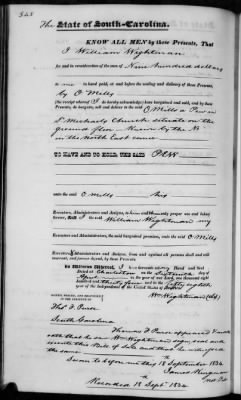 The State of South-Carolina.
KNOW ALL MEN by these Presents, That
I William Wightman
for and in consideration of the sum of Nine hundred dollars
to me in hand paid, at and before the sealing and delivery of these Presents,
by O Mills
(the receipt whereof I do hereby acknowledge) have bargained and sold, and by these
Presents, do bargain, sell and deliver to the said O Mills a Pew in
St Michaels Church situate on the
ground floor Known by the No
in the North East corner
TO HAVE AND TO HOLD, THE SAID Pew
unto the said O Mills his
Executors, Administrators and Assigns, to his and their only proper use and
forever. And I the said William Wightman my
Executors and Administrators, the said bargained premises, unto the said O Mills
Executors, Administrators and Assigns, from and against all persons shall and will
warrant, and forever defend, by these Presents.
IN WITNESS WHEREOF, I have hereunto set my Hand and Seal
Dated at Charleston on the Sixteenth day of
in the year of our Lord, one thousand
hundred and thirty four and in the fifty eighth
year of the Independence of the United States of America.
SIGNED, SEALED, AND DELIVERED
IN THE PRESENCE OF
Wm Wightman (LS)
Thos F Purse
South Carolina
Thomas F Purse appeared
oath that he saw Wm Wightman sign seal and
execute this Bill of Sale and that he witnessed
the same
Sworn to before me this 18 September 1834
James Kingman
Recorded 18 Sept 1834